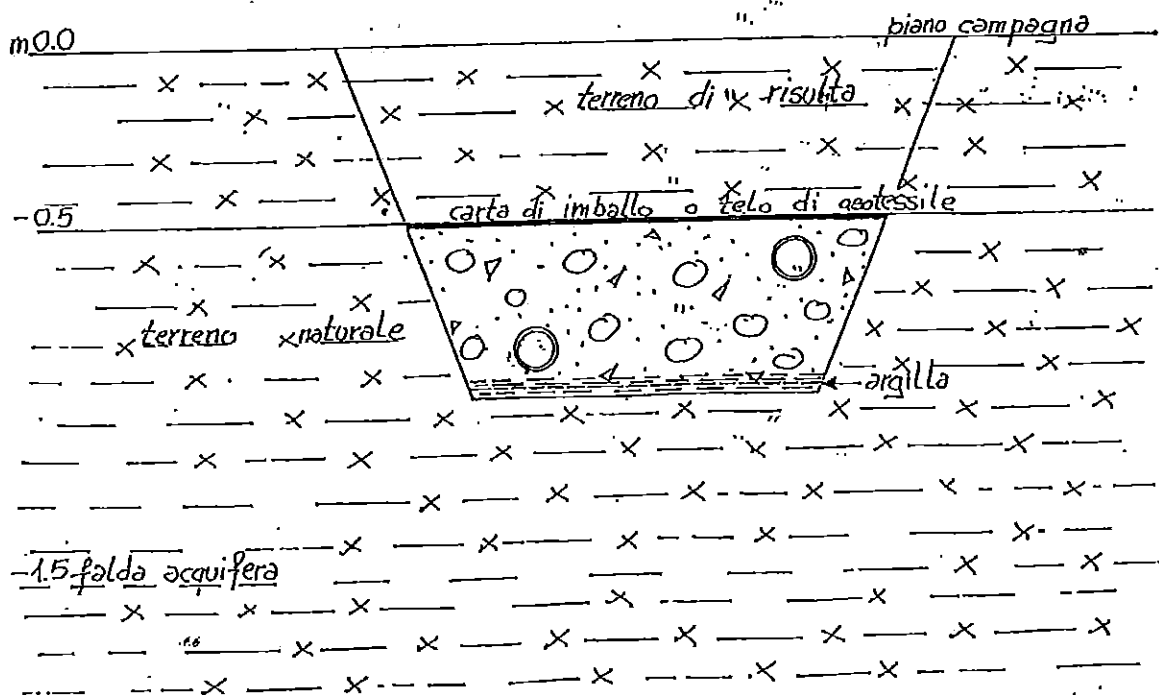 m 0.0
piano campagna
terreno di risulta
-0.5
carta di imballo o telo di geotessile
terreno naturale
argilla
-1.5 falda acquifera